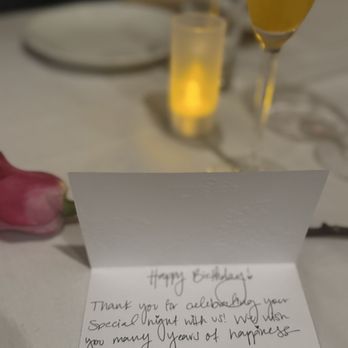 Happy Birthday!
Thank you for celebrating your
Special night with us! We wish
you many years of happiness